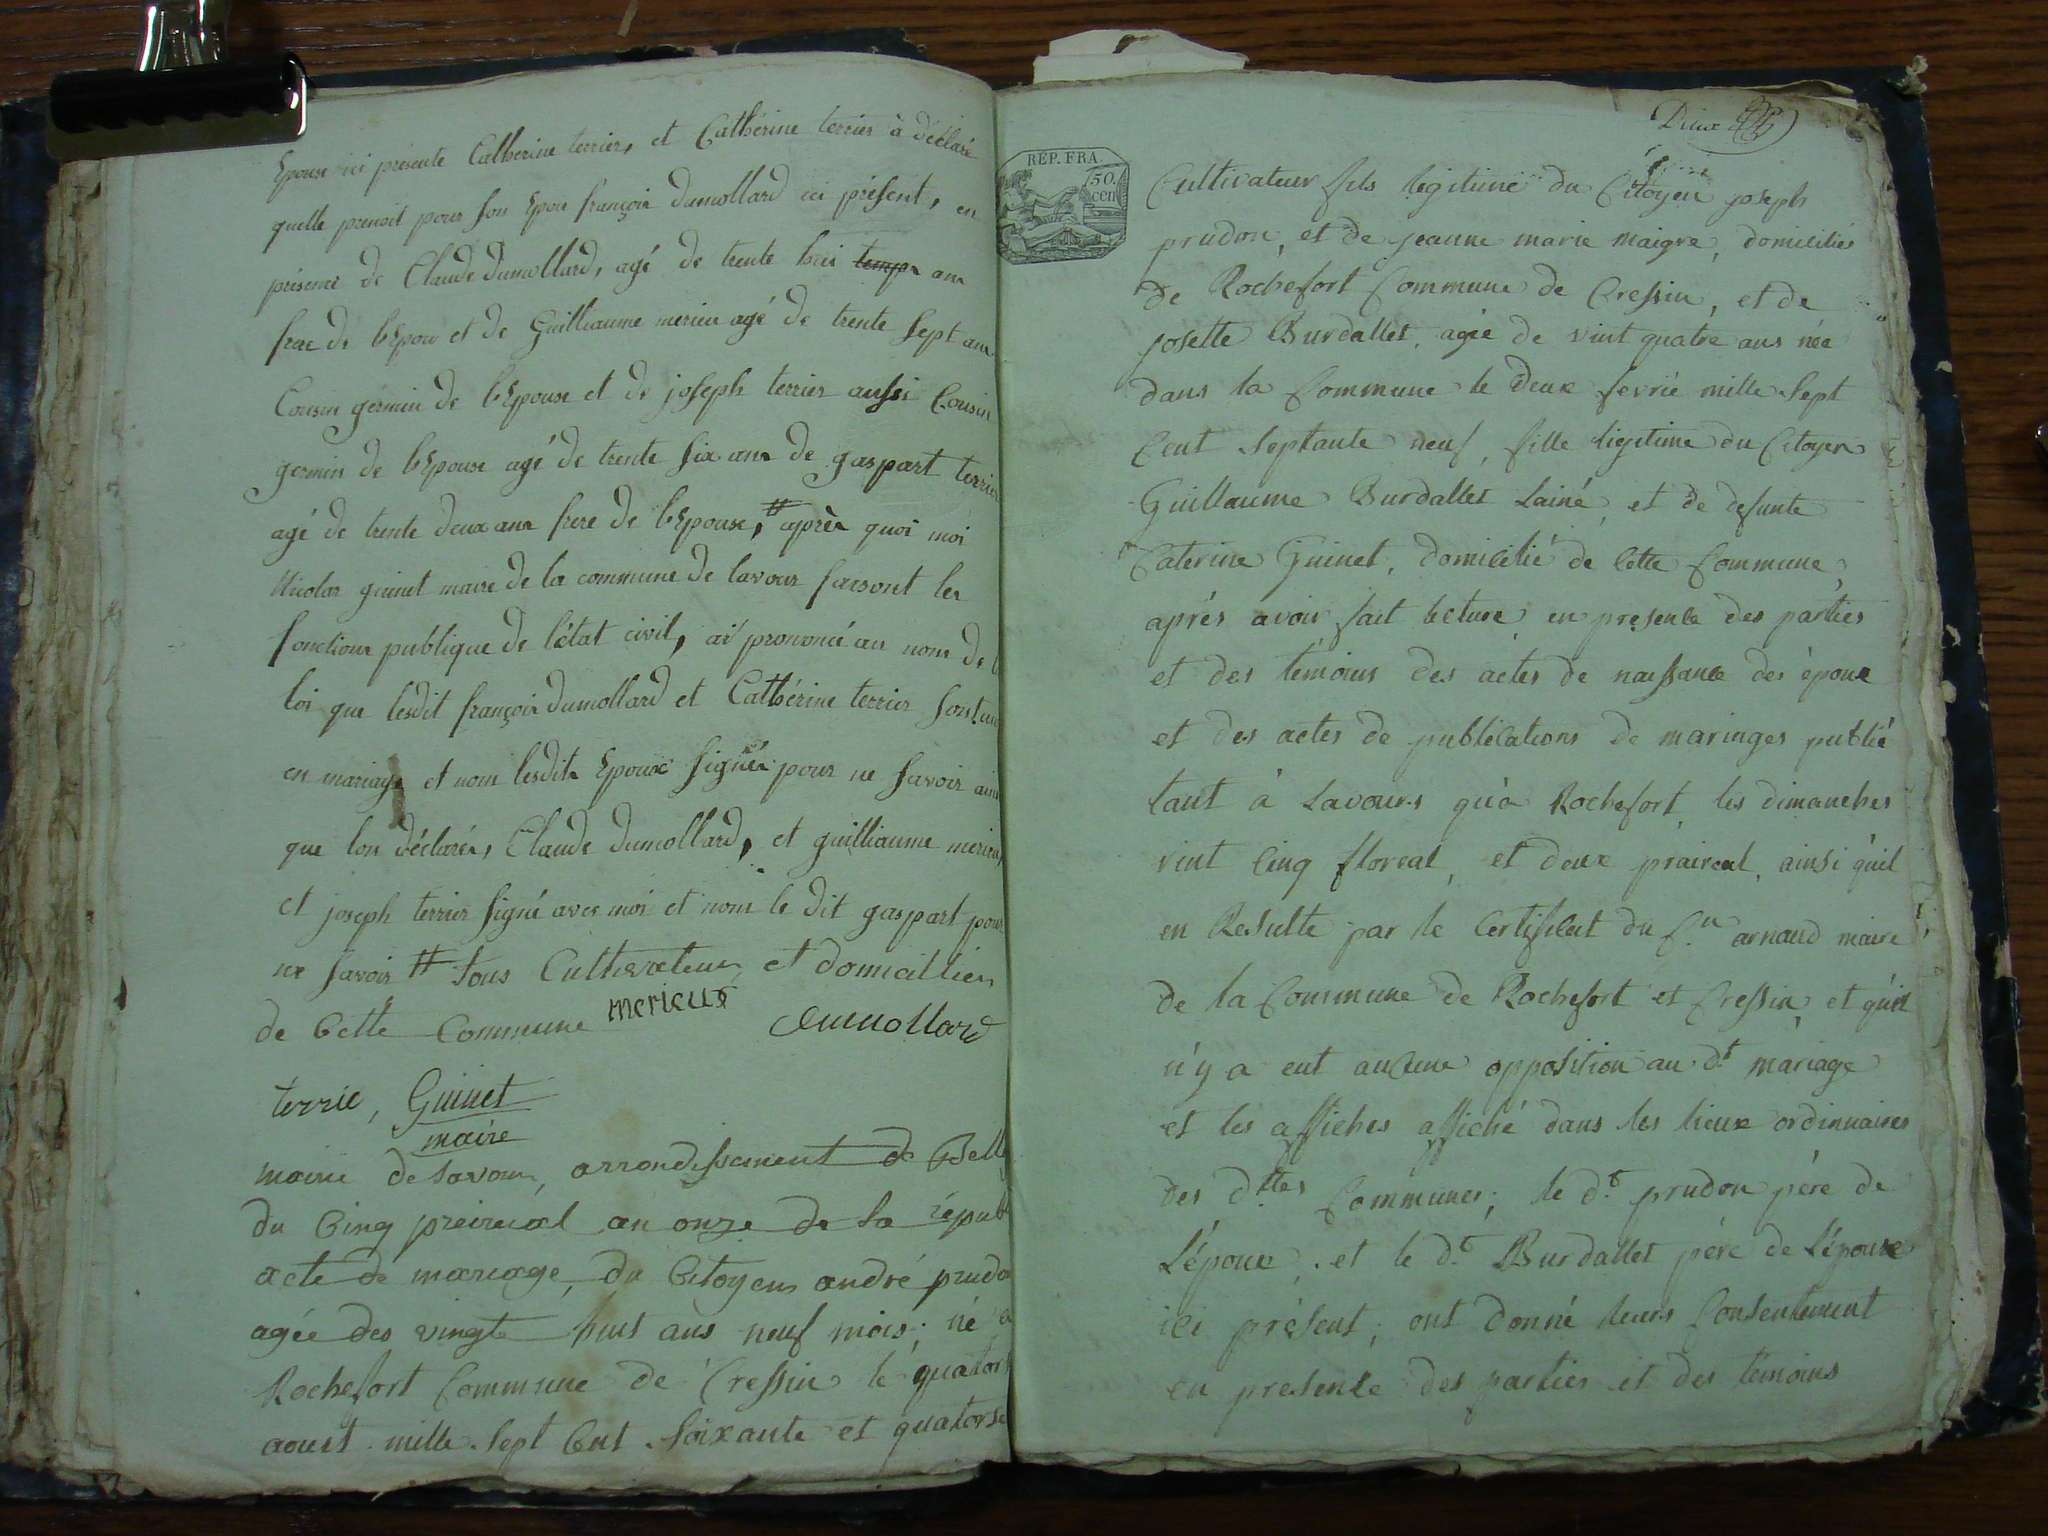 Epouse ici présente Catherine terrier, et Cathérine terrier à déclaré
quelle prenoit pour son Epou françoir dumollard ici présent, en
présence de Claude dumollard, agé de trente huit temps ans
frere de lEpou et de Guilliaume merieu agé de trente sept ans
Cousin germin de lEpouse et de joseph terrier aussi Cousin
germin de lEpouse agé de trente six ans de gaspart terrier
agé de trente deux ans frere de lEpouse, # après quoi moi
Nicolas guinet maire de la commune de lavour faisont les
fonctions publique de létat civil, ai prononcé au nom de l
loi que lesdit françoir dumollard et Cathérine terrier sont uni
en mariage et nom lesdits Epoux signér pour ne savoir ainsi
que lon déclarér, Claude dumollard, et guilliaume merieu,
et joseph terrier signé avec moi et nom le dit gaspart pour
ne savoir # tous Cultivateur et domicillier
de Cette Commune merieux dumollard
terrie, Guinet
maire
mairie de Lavour, arrondissement de Bell
du Cinq preireal an onze de la républ
acte de mariage, du Citoyens andré prudo
agée des vingte huit ans neuf mois; né a
Rochefort Commune de Cressin le quators
aoust mille sept Cent soixante et quatorse
Deux
REP. FRA.
50. cen
Cultivateur fils legitime du Citoyen joseph
prudon, et de jeanne marie maigre, domiciliés
de Rochefort Commune de Cressin, et de
josette Burdallet, agée de vint quatre ans née
dans la Commune le deux fevrié mille sept
Cent septante neuf, fille ligitime du Citoyen
Guillaume Burdallet Lainé, et de defunte
Caterine Guinet, domicilié de Cette Commune,
après avoir fait lecture en presente des parties
et des temoins des actes de naissance des époux
et des actes de publications de mariages publié
tant à Lavours qu'a Rochefort, les dimanches
vint Cinq floreal, et deux praireal, ainsi quil
en Resulte par le Certificat du C.en arnaud maire
de la Commune de Rochefort et Cressin et quil
n'y a eut aucune opposition au d.t mariage
et les affiches affiché dans les lieux ordinnaires
des d.ttes Communes; le d.t prudon père de
L'époux, et le d.t Burdallet père de l'épouse
ici présent; ont donné leurs Consentement
en presente des parties et des temoins